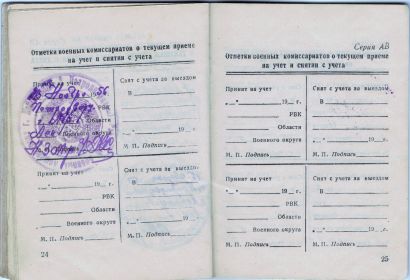 Отметки военных комиссариатов о текущем приеме
на учет и снятии с учета
Принят на учет
Ноября 1956
РВК
Области
Военного округа
М. П. Подпись
Снят с учета за выездом
В
„ “ 19 г.
М. П. Подпись
Принят на учет
„ “ 19 г.
РВК
Области
Военного округа
М. П. Подпись
Снят с учета за выездом
В
„ “ 19 г.
М. П. Подпись
24
Серия АВ
Отметки военных комиссариатов о текущем приеме
на учет и снятии с учета
Принят на учет
„ “ 19 г.
РВК
Области
Военного округа
М. П. Подпись
Снят с учета за выездом
В
„ “ 19 г.
М. П. Подпись
Принят на учет
„ “ 19 г.
РВК
Области
Военного округа
М. П. Подпись
Снят с учета за выездом
В
„ “ 19 г.
М. П. Подпись
25